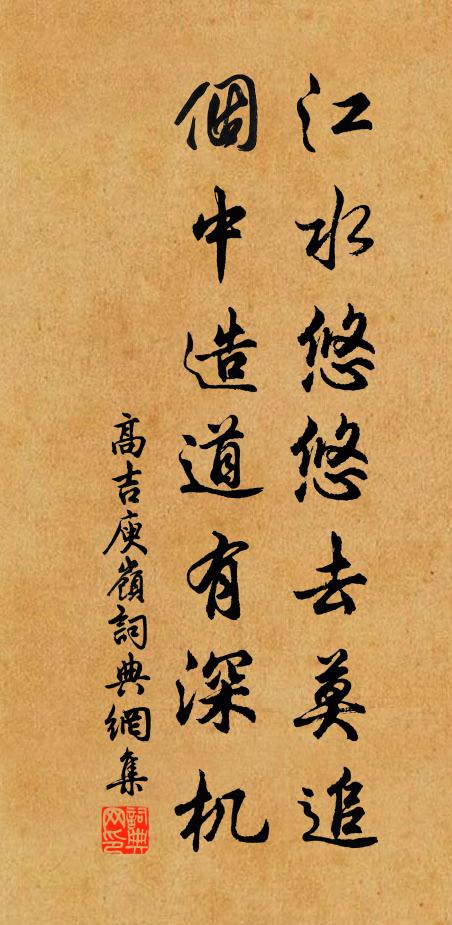 江水悠悠去莫追
個中造道有深机
高吉庾嶺詞典網集
詞典网印